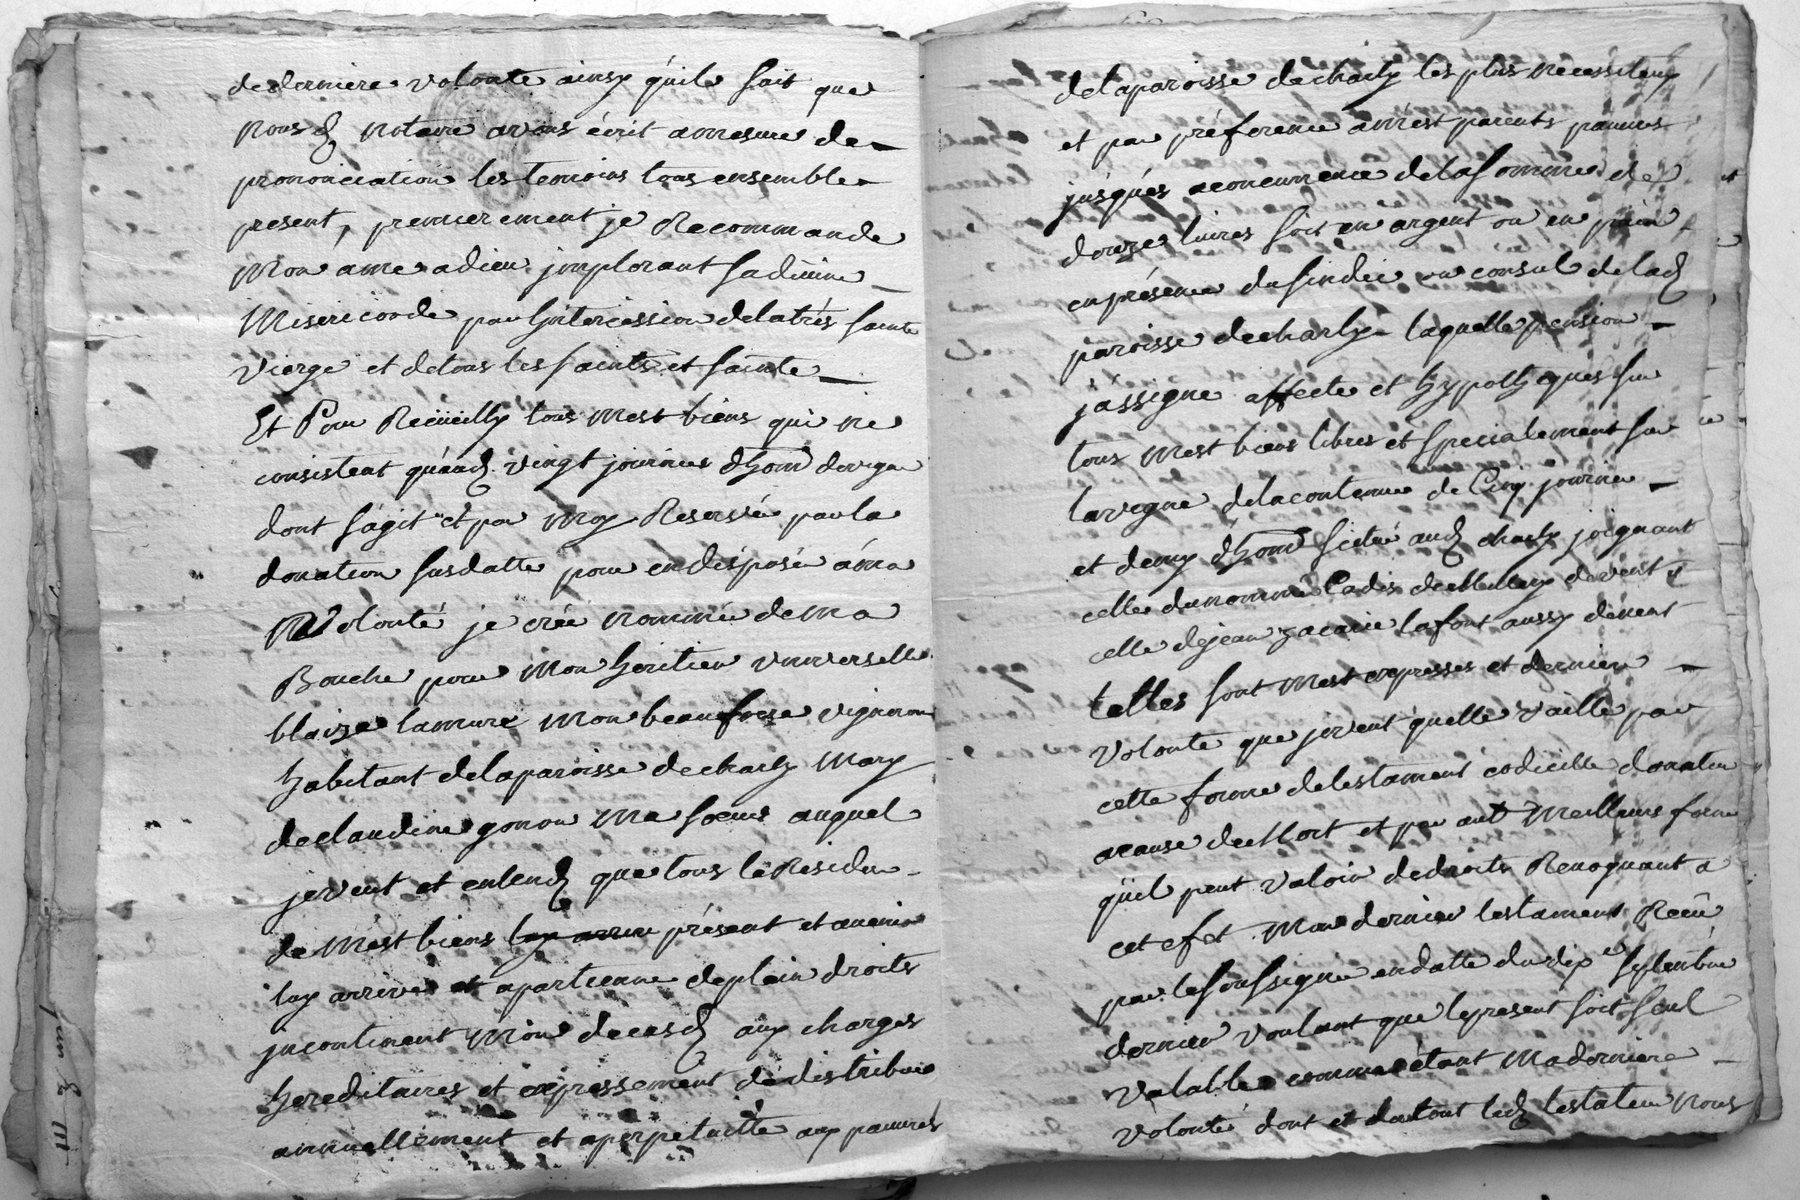 de derniere volonté ainsy quil suit que
Nous d notaire avons écrit amesure de
prononciation les temoins tous ensemble
present, premierement je Recommande
Mon ame a dieu jmplorant sa divine
Misericorde par Lintercession delatrés sainte
Vierge et detous les saints et sainte
Et Pour Recüeilly tous mest biens qui ne
consistent quaud vingt journées dhom devigne
dont sagit et par moy Reservée parla
donation susdatte pour en disposé áma
Volonté je crée nommée dema
Bouche pour Mon heritier universelle
blaize lamure Mon beaufrere vigneron
habitant delaparoisse decharly Mary
declaudine gonon Ma soeur auquel
jeveut et entend que tous le Residu
de mést biens luy arrive présent et avenir
luy arrive et apartienne deplein droits
jncontinent mon decesd aux charges
hereditaires et expressement dedistribue
annuellement et aperpetuitté aux pauvres
delaparoisse decharly les plus necessiteux
et par préference amést parents pauvres
jusqués aconcurrence delasomme de
douze livres soit en argent ou en pain
enprésence dusindic ou consul delad
paroisse decharly laquelle pension
jássigne affecte et hypothequés sur
tous mest biens libres et specialement sur
lavigne delacontenue de Cinq journée
et demy dhom scitué aud charly joignant
celle dunommé Cadis demillery devent
celle dejean zacarie lafont aussy devent
telles sont mest expresses et derniere
volonté que jeveut quelle vaille par
cette forme detestament codicille donation
acause demort et par aut Meilleure forme
quil peut valoir dedroits Revoquant a
cet efet Mon dernier testament Receu
par lesoussigné endatte dudix septembre
dernier voulant que lepresent soit seul
valable comme étant maderniere
volonté dont et dutout led testateur nous
jun 3 111